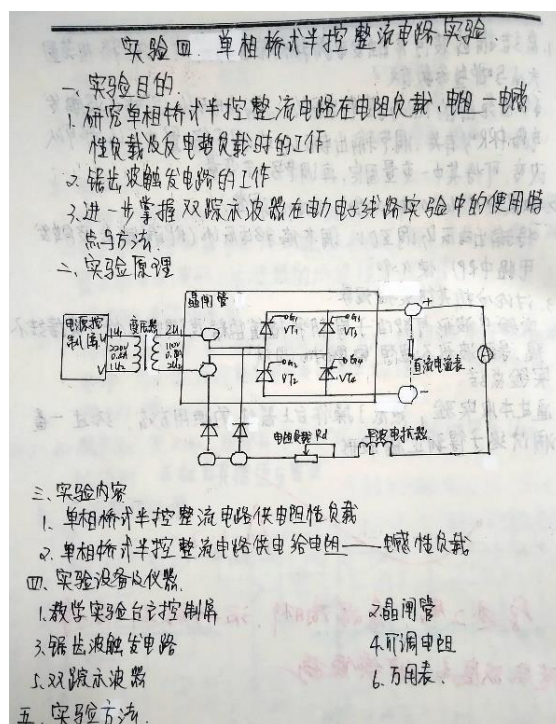 实验四. 单相桥式半控整流电路实验
一、实验目的.
1.研究单相桥式半控整流电路在电阻负载、电阻一电感
性负载及反电势负载时的工作
2.锯齿波触发电路的工作
3.进一步掌握双踪示波器在电力电子线路实验中的使用特
点与方法.
二、实验原理
晶闸管
电源控
制屏
U
V
变压器
1U1
220V
0.8A
1U2
2U1
2U2
G1
VT1
G3
VT3
VT2
G4
VT4
+
A
直流电流表
−
电阻负载 Rd
平波电抗器
三、实验内容
1. 单相桥式半控整流电路供电阻性负载
2. 单相桥式半控整流电路供电给电阻——电感性负载
四、实验设备及仪器
1.教学实验台主控制屏
2.晶闸管
3.锯齿波触发电路
4.可调电阻
5.双踪示波器
6.万用表.
五、实验方法.